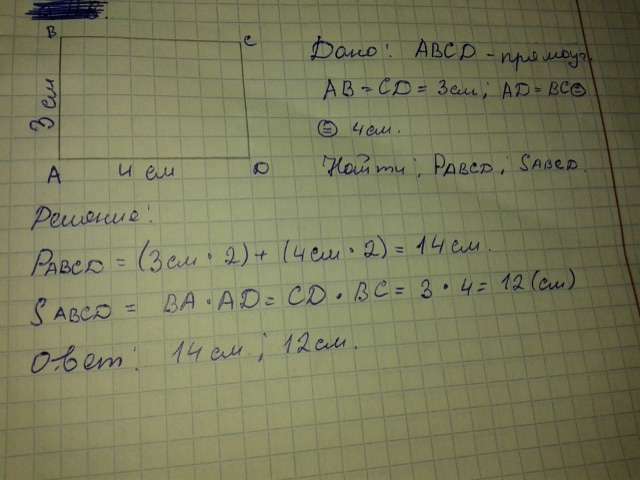 B
C
3 см
A
4 см
D
Дано: ABCD - прямоуг.
AB = CD = 3см; AD = BC =
= 4см.
Найти: PABCD; SABCD.
Решение:
PABCD = (3см · 2) + (4см · 2) = 14 см.
SABCD = BA · AD = CD · BC = 3 · 4 = 12 (см)
Ответ: 14 см ; 12 см.